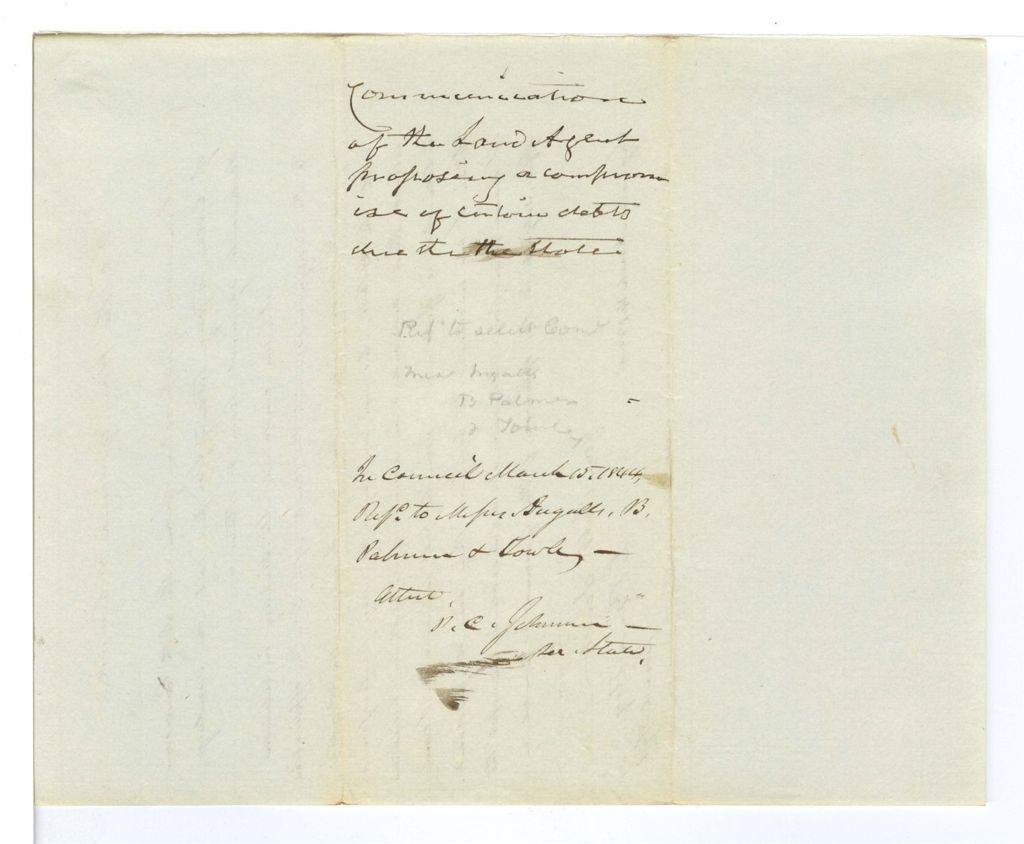 Communication
of the Land Agent
proposing a comprom
ise of certain debts
due the the State
Ref'd to select Com
Mess Ingalls
B Palmer
& Fowley
In Council March 15, 1844,
Refd. to Messrs Ingalls, B.
Palmer & Fowley —
Attest,
P. C. Johnson —
Sec. State,